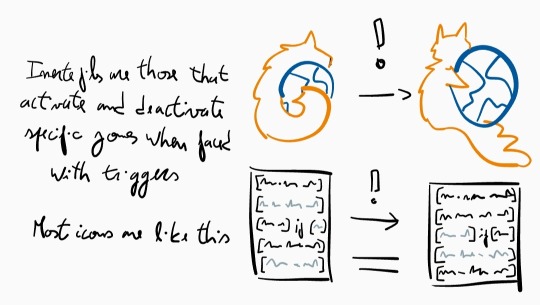 Inerte gifs are those that
activate and deactivate
specific zones when faced
with triggers
Most icons are like this
!
!
if
if